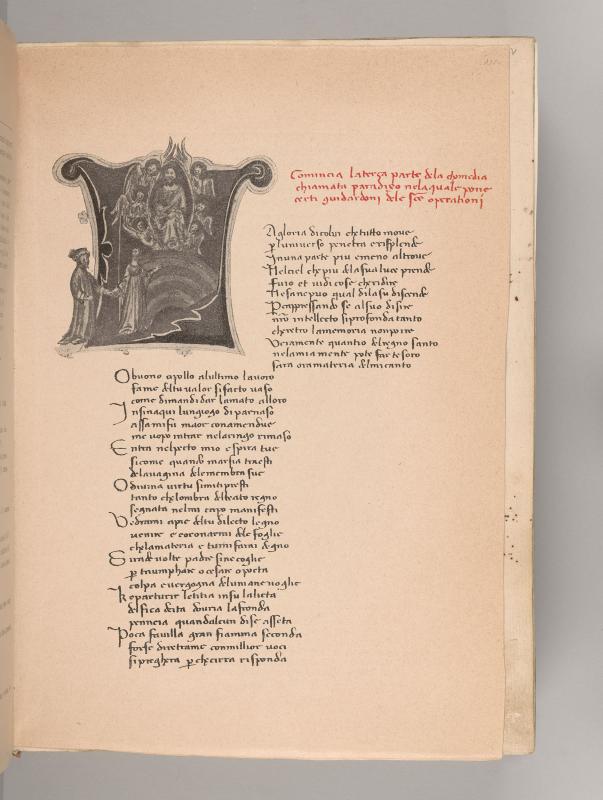 Comincia laterça parte dela comedia
chiamata paradiso nela quale pone
certi guidardoni dele sc̃e operationi
A gloria dicolui chetutto move
ꝑ luniverso penetra e risplende
Inuna parte piu emeno altrove
Nelciel chepiu delasua luce prende
Fuio et vidi cose cheridire
Nesanepuo qual dilasu discende
Peapressando se alsuo disire
nr̃o intellecto siprofonda tanto
chedietro lamemoria nonpoire
Veramente quantio delregno santo
nelamia mente pote far tesoro
sara oramateria delmicanto
Obuono apollo alultimo lavoro
fame deltuvalor sifacto vaso
come dimandi dar lamato alloro
Insinaqui lungiogo di parnaso
assa mifu maor conamendue
me uopo intrar nelaringo rimaso
Entra nelpecto mio espira tue
sicome quando marsia traesti
delavagina delemembra sue
Odivina virtu simitipresti
tanto chelombra delbeato regno
segnata nelmi capo manifesti
Vedrami apie deltu dilecto legno
venire e coronarmi dele foglie
chelamateria e tumifarai degno
Sirade volte padre sinecoglie
ꝑ triumphare o cesare opoeta
colpa e vergogna delumane voglie
Ke parturir letitia insu lalieta
delfica deita douria lafronda
peneia quandalcun dise asseta
Poca favilla gran fiamma seconda
forse diretrame conmillior voci
sipregherra ꝑ checirra risponda